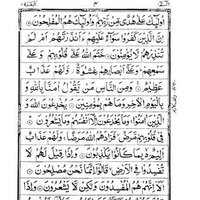 الٓمّٓ ۱ ۳ البقرة ۲
اُولٰٓئِكَ عَلٰى هُدًى مِّنْ رَّبِّهِمْ وَاُولٰٓئِكَ هُمُ الْمُفْلِحُوْنَ
اِنَّ الَّذِيْنَ كَفَرُوْا سَوَآءٌ عَلَيْهِمْ ءَاَنْذَرْتَهُمْ اَمْ لَمْ
تُنْذِرْهُمْ لَا يُؤْمِنُوْنَ خَتَمَ اللّٰهُ عَلٰى قُلُوْبِهِمْ وَعَلٰى
سَمْعِهِمْ وَعَلٰٓى اَبْصَارِهِمْ غِشَاوَةٌ وَّلَهُمْ عَذَابٌ
عَظِيْمٌ وَمِنَ النَّاسِ مَنْ يَّقُوْلُ اٰمَنَّا بِاللّٰهِ وَ
بِالْيَوْمِ الْاٰخِرِ وَمَا هُمْ بِمُؤْمِنِيْنَ يُخٰدِعُوْنَ اللّٰهَ وَ
الَّذِيْنَ اٰمَنُوْا وَمَا يَخْدَعُوْنَ اِلَّآ اَنْفُسَهُمْ وَمَا يَشْعُرُوْنَ
فِيْ قُلُوْبِهِمْ مَّرَضٌ فَزَادَهُمُ اللّٰهُ مَرَضًا وَلَهُمْ عَذَابٌ
اَلِيْمٌ بِمَا كَانُوْا يَكْذِبُوْنَ وَاِذَا قِيْلَ لَهُمْ لَا
تُفْسِدُوْا فِى الْاَرْضِ قَالُوْٓا اِنَّمَا نَحْنُ مُصْلِحُوْنَ
اَلَآ اِنَّهُمْ هُمُ الْمُفْسِدُوْنَ وَلٰكِنْ لَّا يَشْعُرُوْنَ